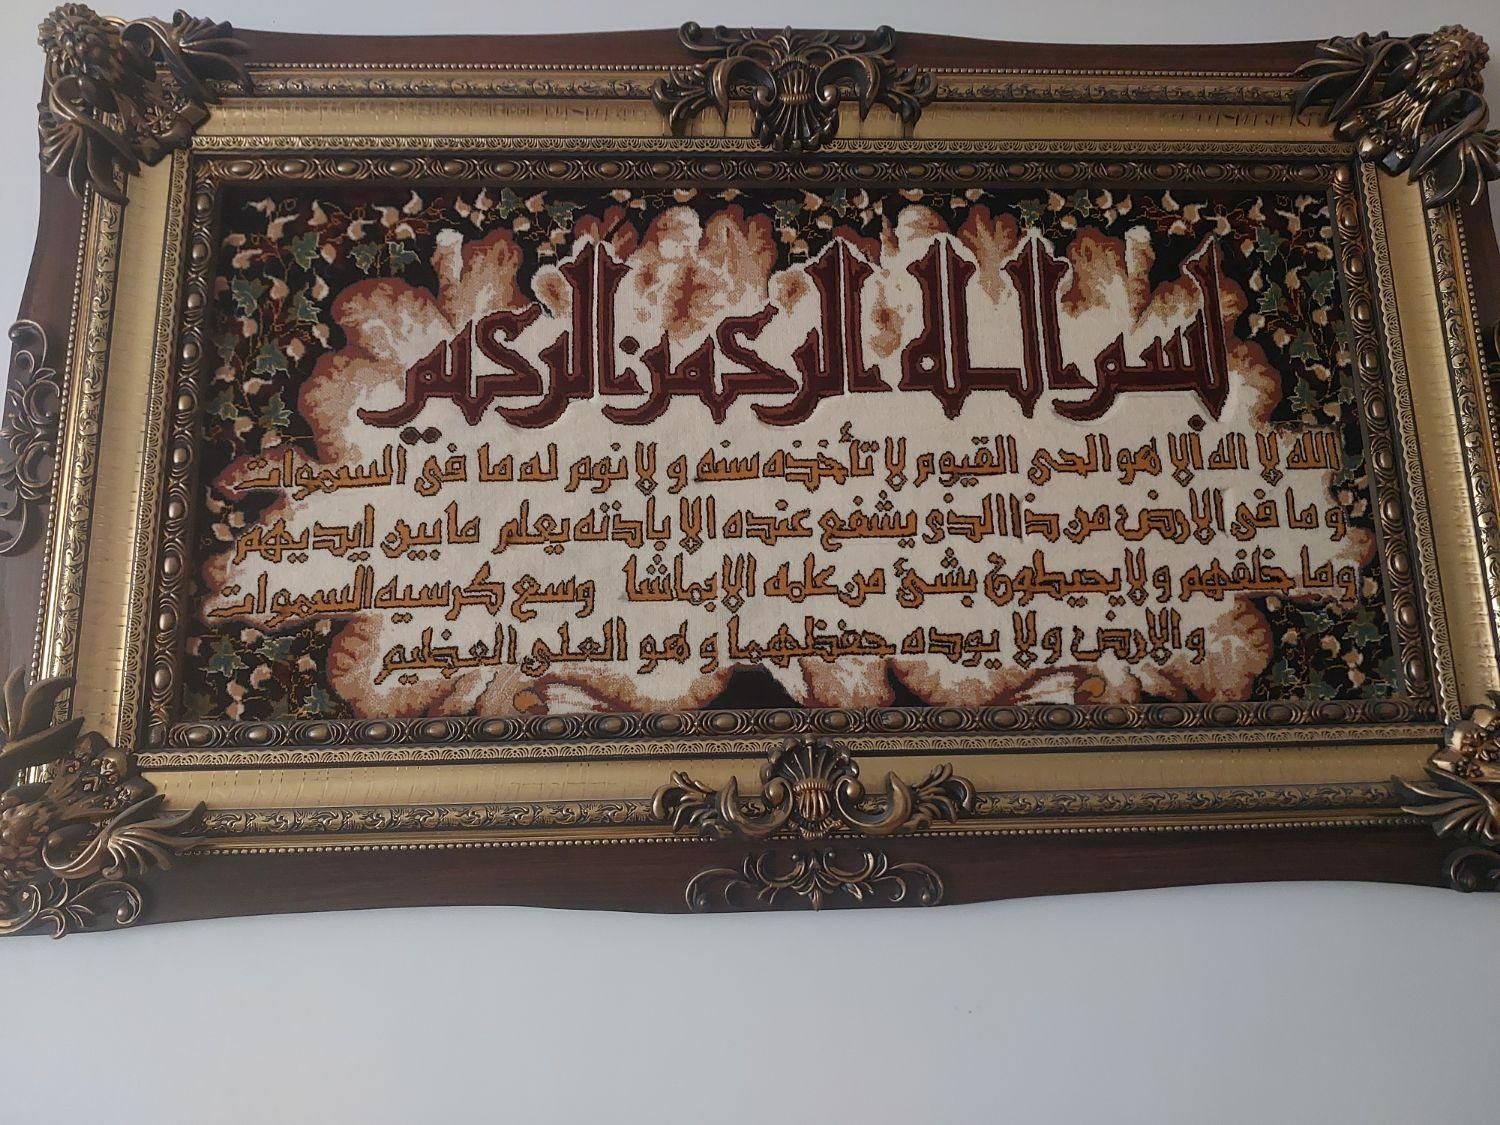 بسم الله الرحمن الرحيم
الله لا اله الا هو الحى القيوم لا تأخذه سنه و لا نوم له ما فى السموات
و ما فى الارض من ذا الذى يشفع عنده الا باذنه يعلم ما بين ايديهم
و ما خلفهم و لا يحيطون بشئ من علمه الا بماشا وسع كرسيه السموات
و الارض و لا يوده حفظهما و هو العلى العظيم